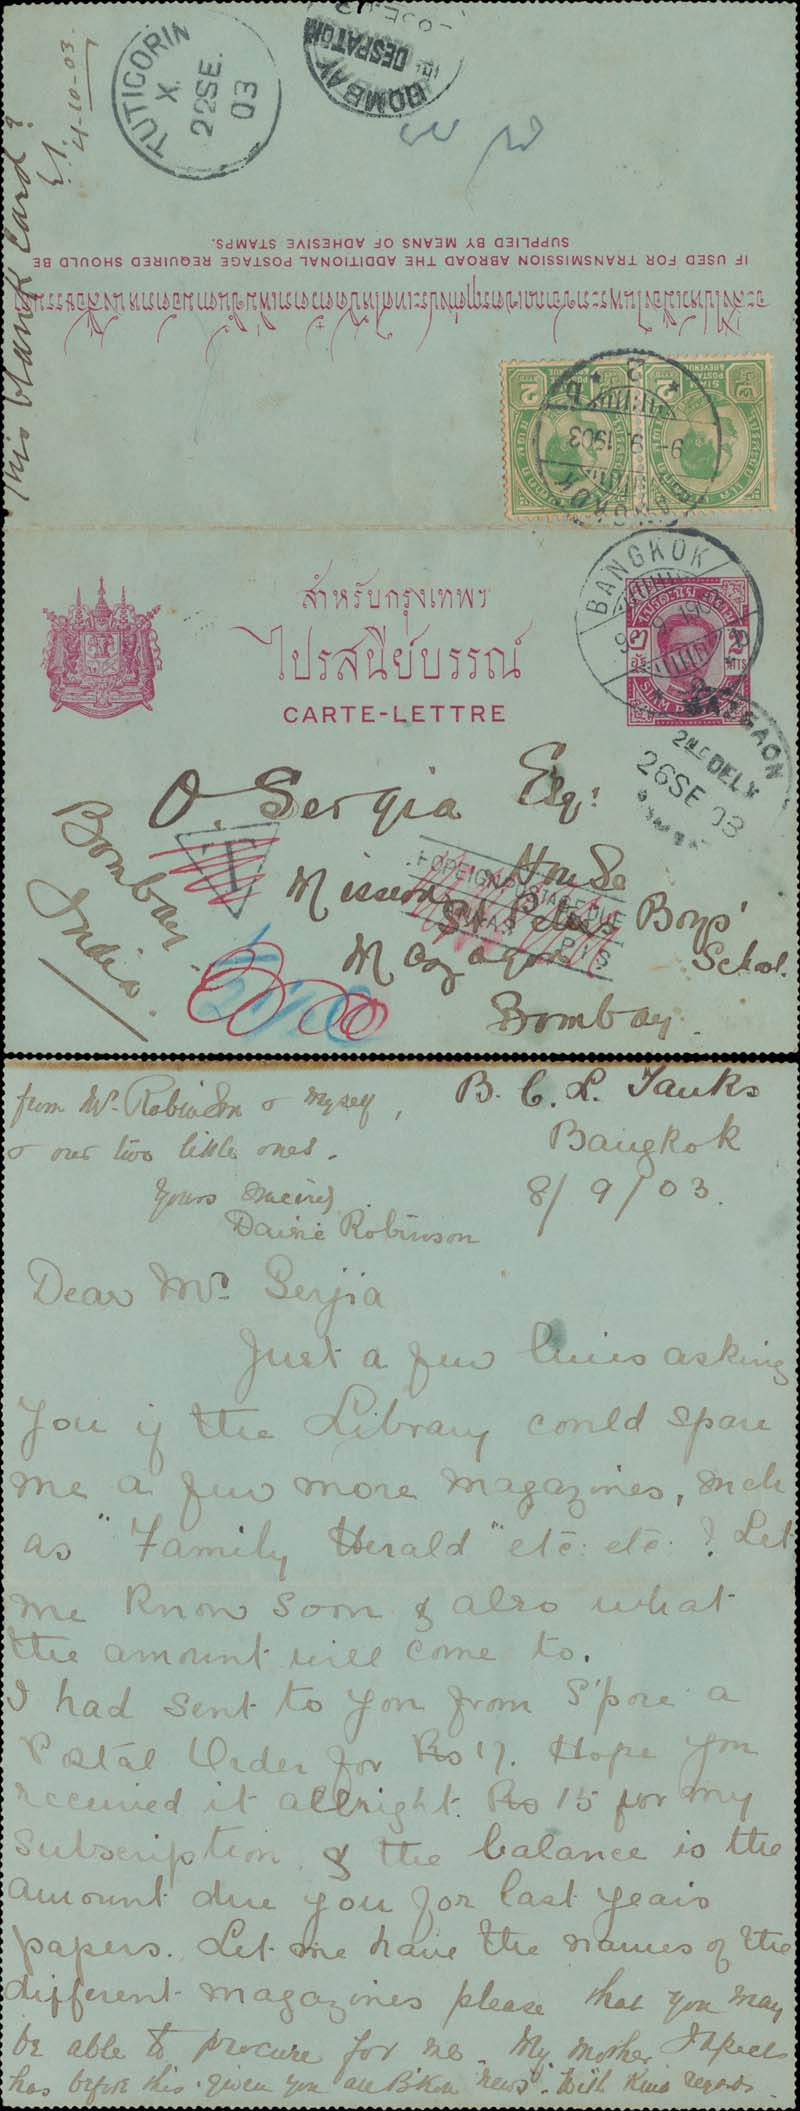 TUTICORIN
X.
22SE.
03
BOMBAY
DESPATCH
This blank card?
4-10-03.
IF USED FOR TRANSMISSION ABROAD THE ADDITIONAL POSTAGE REQUIRED SHOULD BE
SUPPLIED BY MEANS OF ADHESIVE STAMPS.
SIAM
POSTAGE
& REVENUE
2
2
BANGKOK
9-9 1903
2
สำหรับกรุงเทพฯ
ไปรสนีย์บรรณ์
CARTE-LETTRE
BANGKOK
SIAM
MAZAGAON
2ND DELY
26SE 03
O. Sergia Esq:
Mission House
St Peters Boys' School.
Mazagon
Bombay.
Bombay.
India.
T
FOREIGN POSTAGE DUE
ANNAS
PIS
from Mr. Robinson & myself,
& our two little ones.
Yours sincerely
Daisie Robinson
B. C. L. Tanks
Bangkok
8/9/03.
Dear Mr. Serjia
Just a few lines asking
you if the Library could spare
me a few more magazines, such
as "Family Herald" etc: etc: ? Let
me know soon & also what
the amount will come to.
I had sent to you from S'pore a
Postal Order for Rs 17. Hope you
received it allright. Rs 15 for my
subscription & the balance is the
amount due you for last years
papers. Let me have the names of the
different magazines please that you may
be able to procure for me. My mother I expect
has before this given you all B'Kok "news". With kind regards